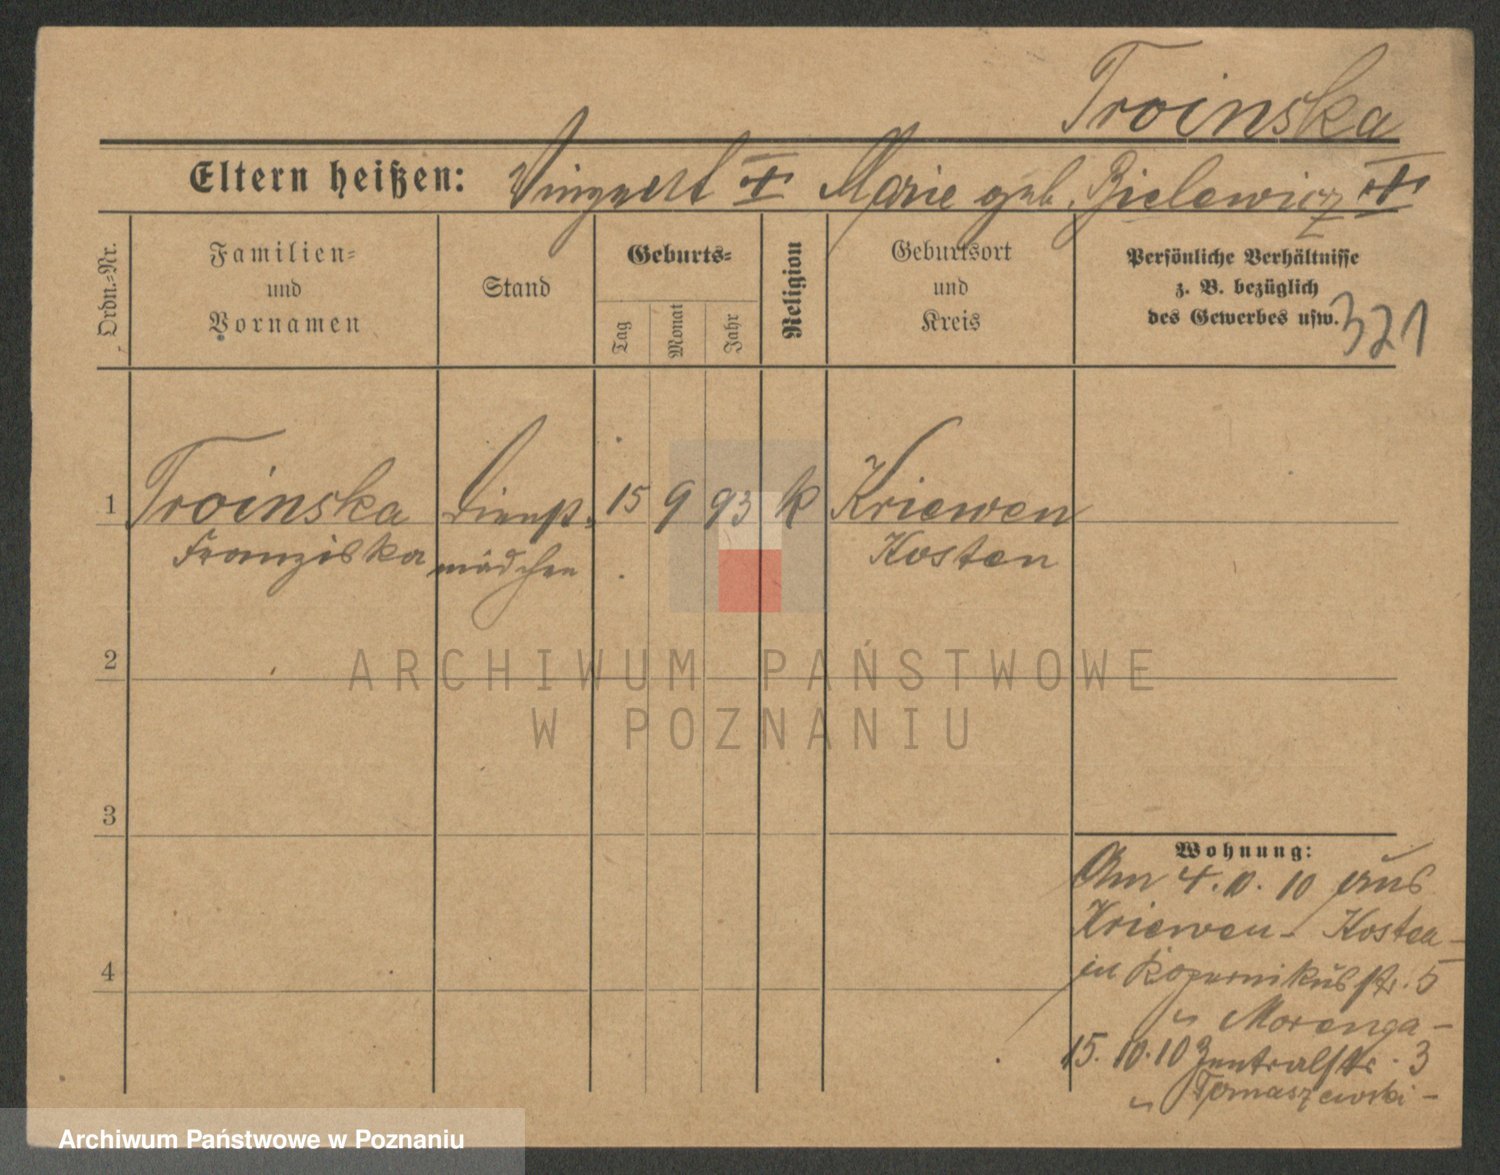 Troinska
Eltern heißen: Vinzent + Marie geb. Bielewicz +
Ordn.-Nr.
Familien-
und
Vornamen
Stand
Geburts-
Tag
Monat
Jahr
Religion
Geburtsort
und
Kreis
Persönliche Verhältnisse
z. B. bezüglich
des Gewerbes usw.
321
1 Troinska Dienst- 15 9 93 k Kriewen
Franziska mädchen Kosten
2
3
4
Wohnung:
Am 4.10.10 aus
Kriewen - Kosten -
in Kopernikusstr. 5
Morenga -
15.10.10 Zentralstr. 3
Tomaszewski -
ARCHIWUM PAŃSTWOWE
W POZNANIU
Archiwum Państwowe w Poznaniu